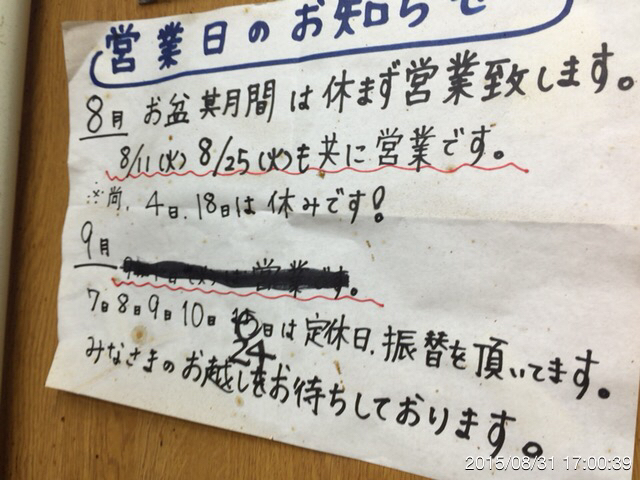 営業日のお知らせ
8月 お盆其月間は休まず営業致します。
8/11(火) 8/25(火)も共に営業です。
※尚、4日、18日は休みです!
9月
営業です。
7日8日9日10日 日は定休日、振替を頂いてます。
24
みなさまのお越しをお待ちしております。
2015/08/31 17:00:39